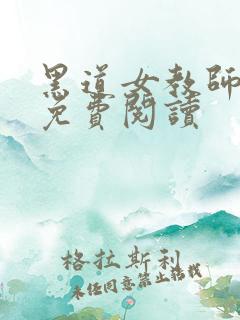 黑道女教師
免費閱讀
格拉斯利
未经同意禁止搭载